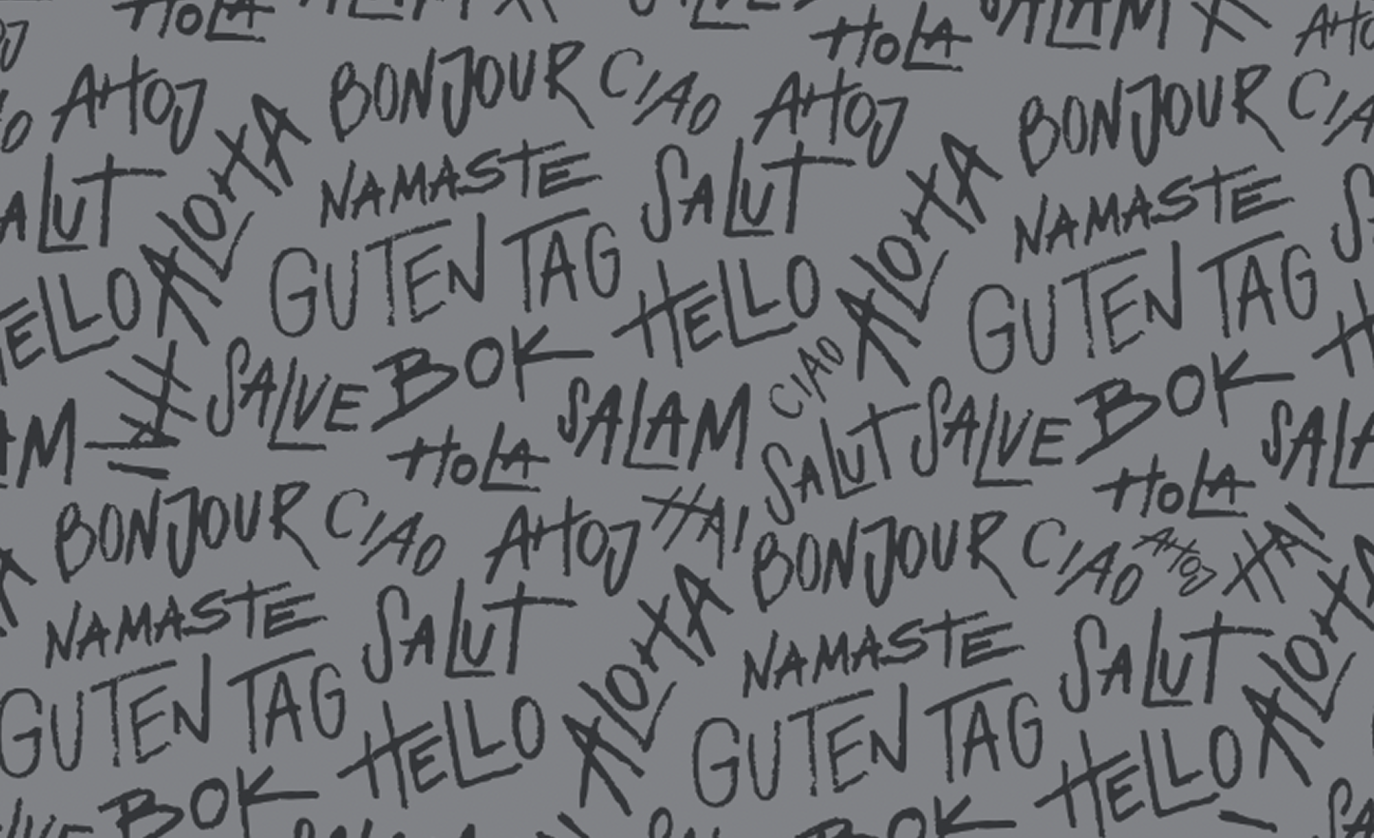 HOLA
HOLA
SALAM
AHOJ BONJOUR CIAO AHOJ BONJOUR CIA
ALOHA ALOHA
ALUT NAMASTE SALUT NAMASTE
GUTEN TAG GUTEN TAG
HELLO HELLO
CIAO
SALVE BOK SALAM SALUT SALVE BOK
AM HOLA HOLA SALA
BONJOUR CIAO AHOJ HAI BONJOUR CIAO AHOJ HAI
NAMASTE SALUT ALOHA NAMASTE SALUT ALOHA
GUTEN TAG HELLO GUTEN TAG HELLO
BOK BOK